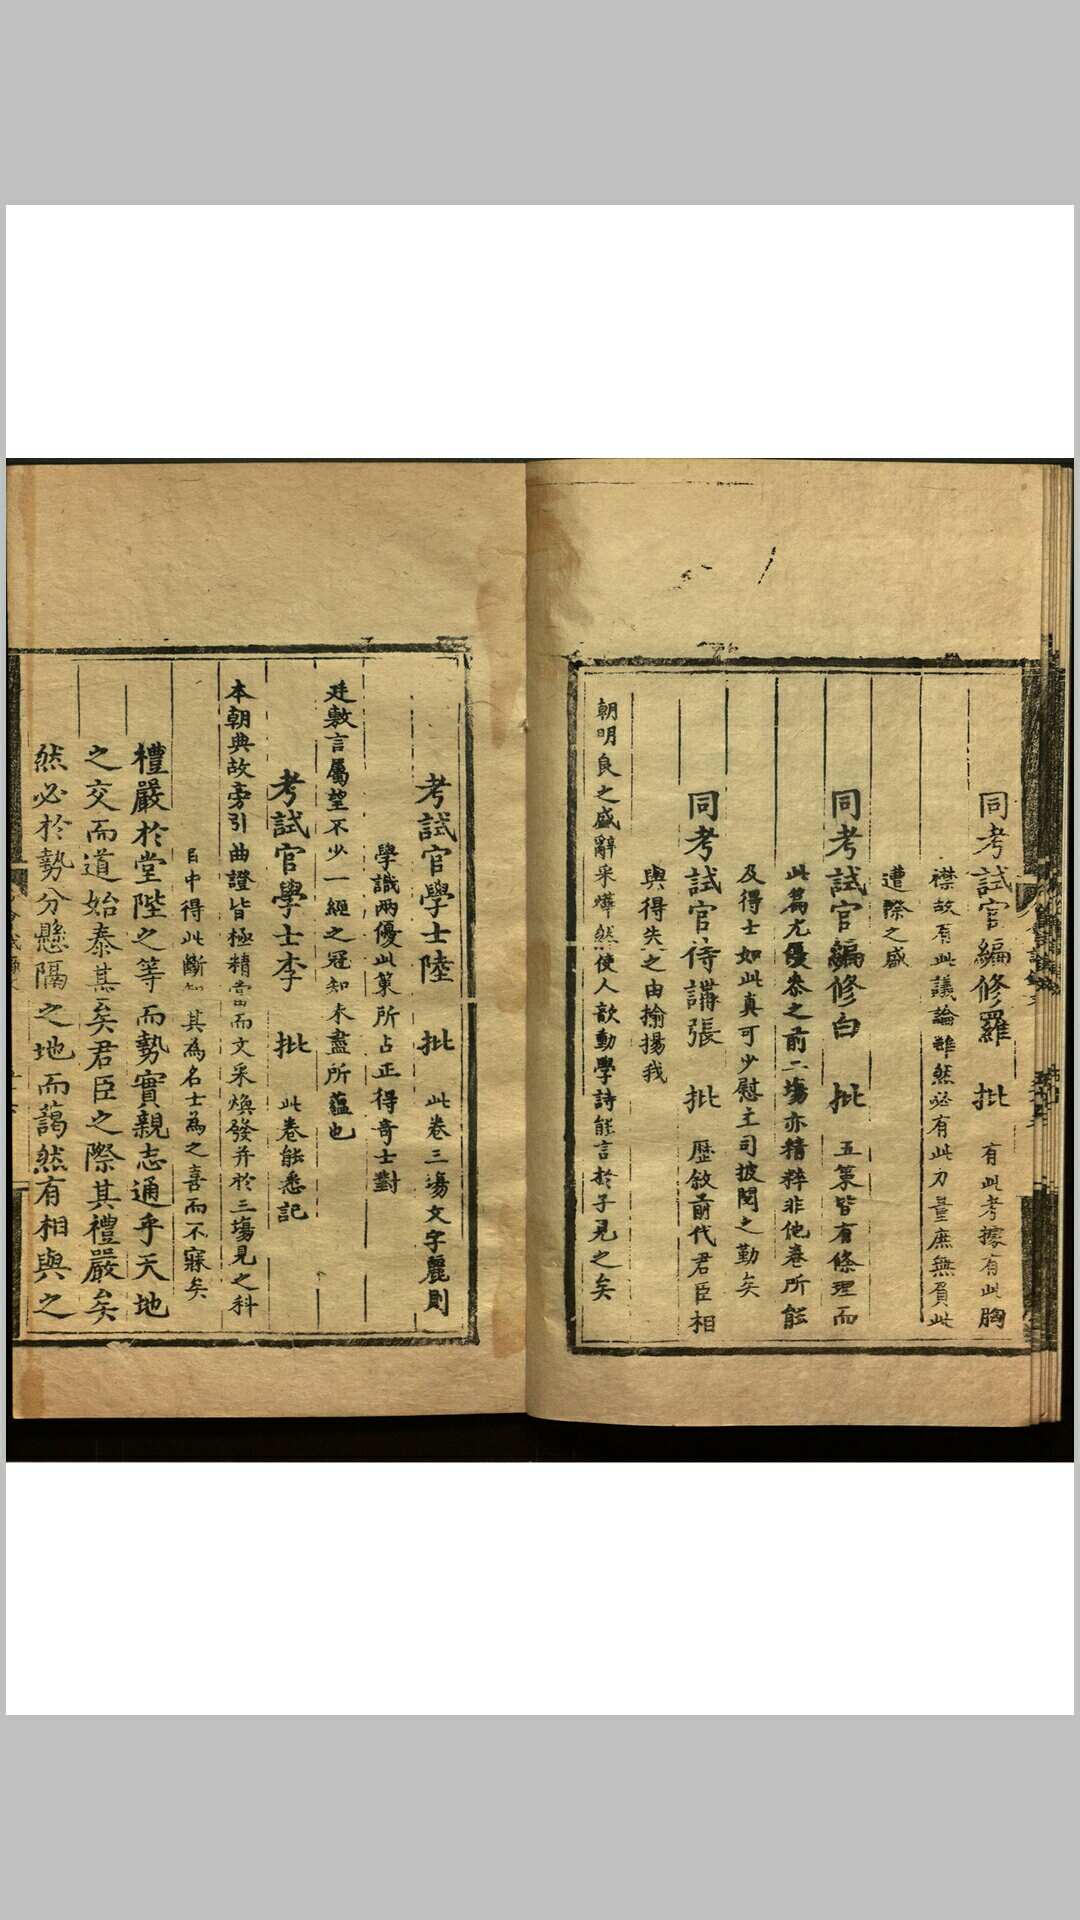 同考試官編修羅　批　有此考據有此胸
襟故有此議論雖然必有此力量庶無負此
遭際之盛
同考試官編修白　批　五策皆有條理而
此篇尤優恭之前二場亦精粹非他卷所能
及得士如此真可少慰主司披閱之勤矣
同考試官待講張　批　歷敘前代君臣相
與得失之由揄揚我
朝明良之盛辭采燁然使人歆動學詩能言於子見之矣
考試官學士陸　批　此卷三場文字麗則
學識兩優此策所占正得奇士對
廷敷言屬望不少一經之冠知未盡所蘊也
考試官學士李　批　此卷能悉記
本朝典故旁引曲證皆極精當而文采煥發并於三場見之科
目中得此斷知其為名士為之喜而不寐矣
禮嚴於堂陛之等而勢實親志通乎天地
之交而道始泰甚矣君臣之際其禮嚴矣
然必於勢分懸隔之地而藹然有相與之